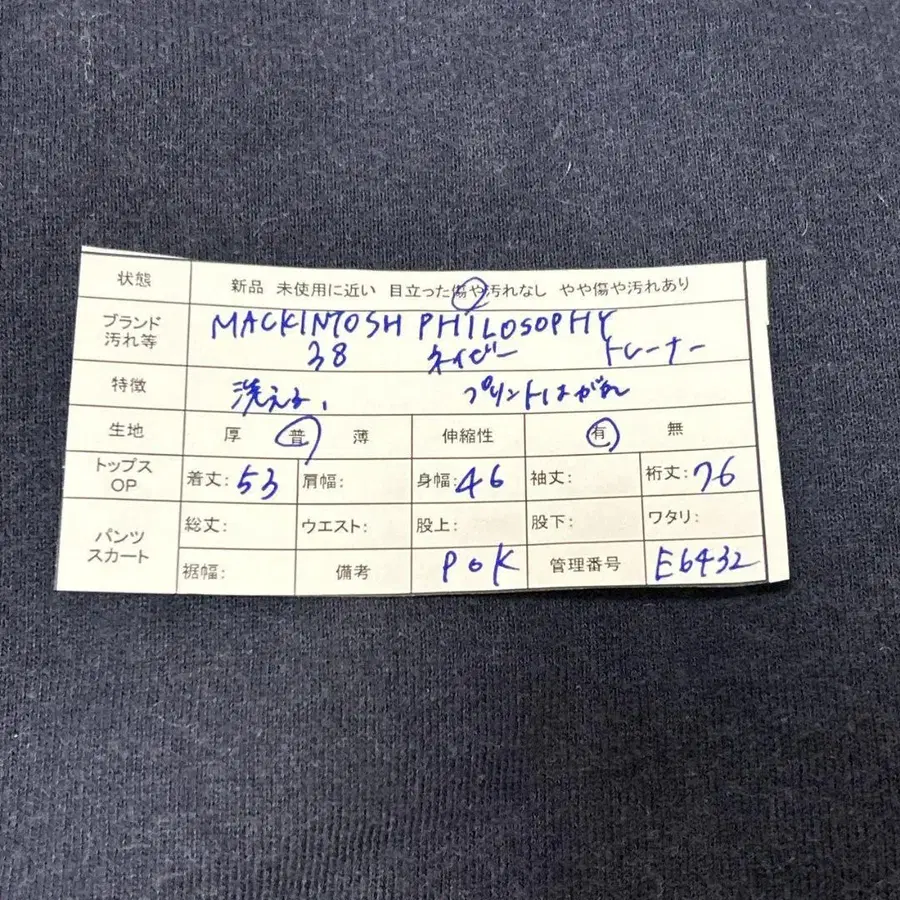 状態 新品 未使用に近い 目立った傷や汚れなし やや傷や汚れあり
ブランド MACKINTOSH PHILOSOPHY
汚れ等 38 ネイビー トレーナー
特徴 洗える、 プリントはがれ
生地 厚 普 薄 伸縮性 有 無
トップス
OP 着丈:53 肩幅: 身幅:46 袖丈: 裄丈:76
パンツ
スカート 総丈: ウエスト: 股上: 股下: ワタリ:
裾幅: 備考 POK 管理番号 E6432